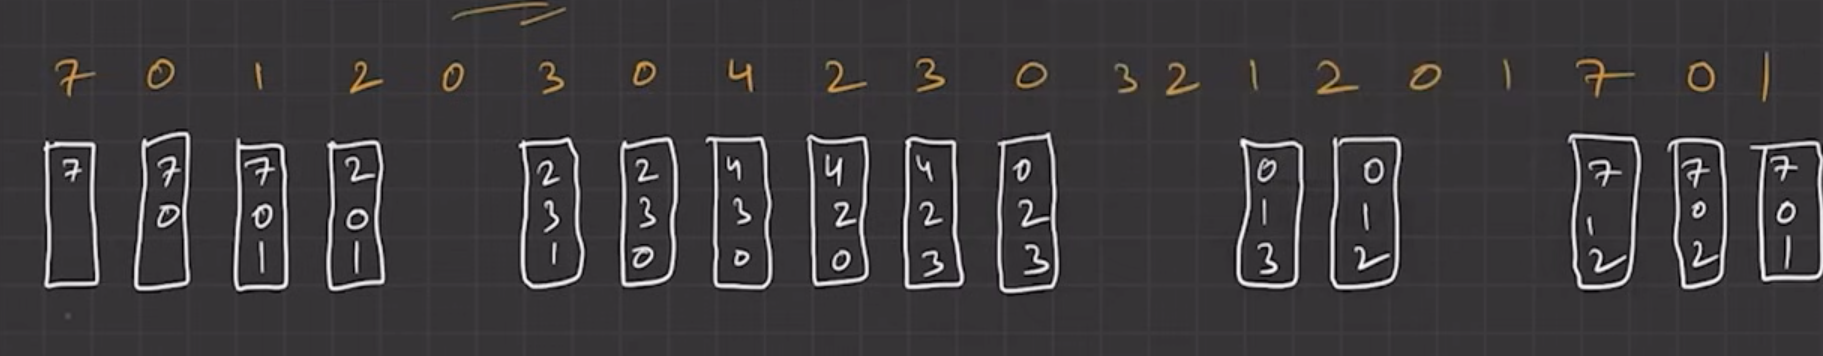 7 0 1 2 0 3 0 4 2 3 0 3 2 1 2 0 1 7 0 1
7 7 7 2 2 2 4 4 4 0 0 0 7 7 7
0 0 0 3 3 3 2 2 2 1 1 1 0 0
1 1 1 0 0 0 3 3 3 2 2 2 1